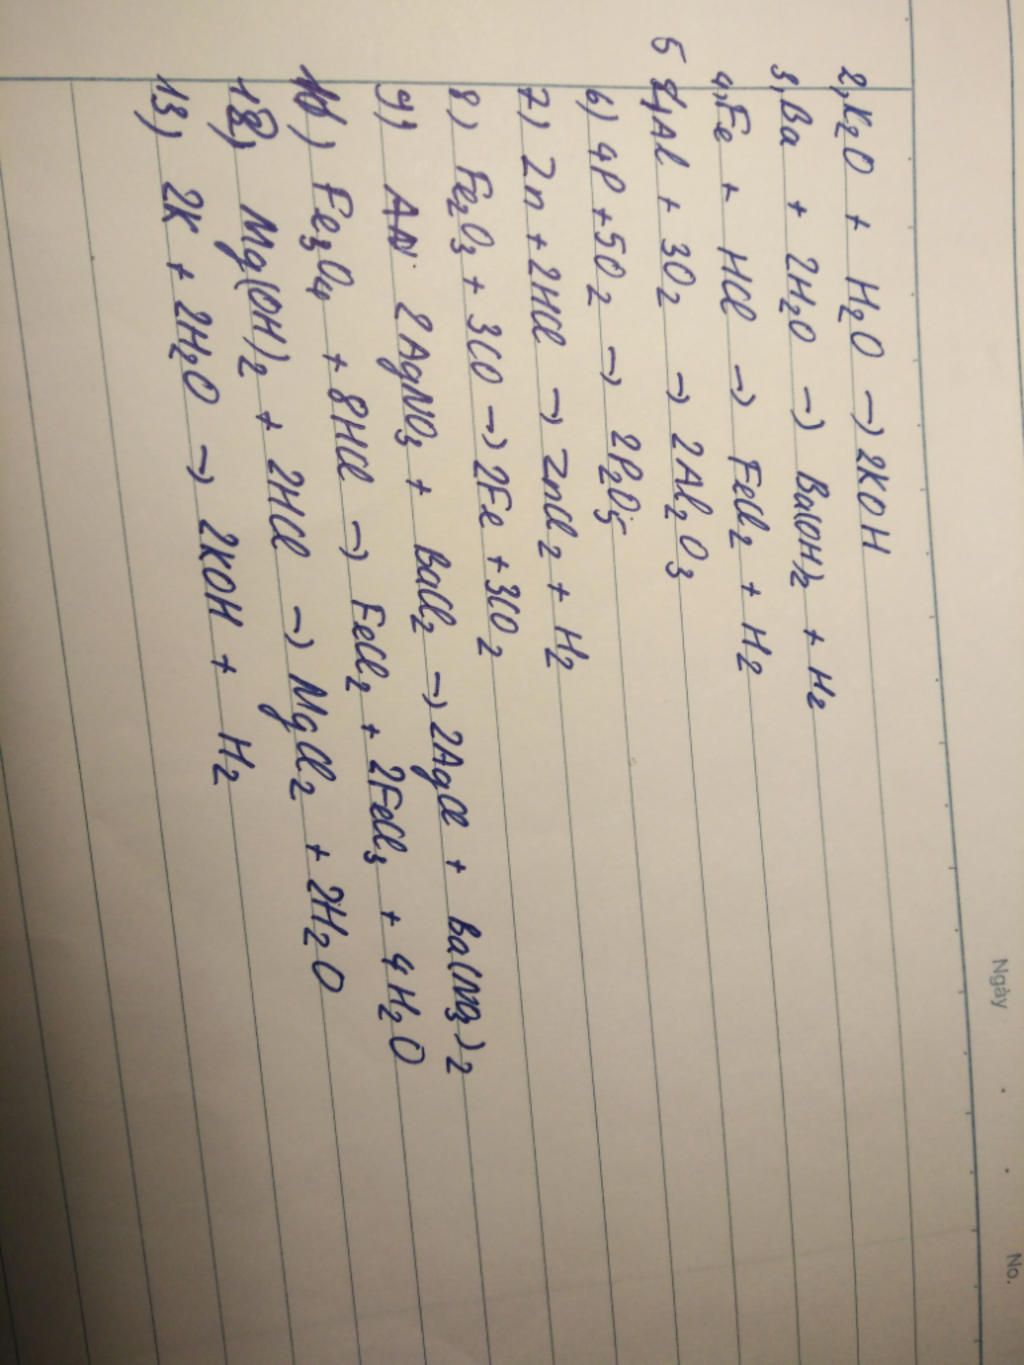 Ngày No.
2, K₂O + H₂O → 2KOH
3, Ba + 2H₂O → Ba(OH)₂ + H₂
4, Fe + HCl → FeCl₂ + H₂
5 4Al + 3O₂ → 2Al₂O₃
6) 4P + 5O₂ → 2P₂O₅
7) Zn + 2HCl → ZnCl₂ + H₂
8) Fe₂O₃ + 3CO → 2Fe + 3CO₂
9) 2AgNO₃ + BaCl₂ → 2AgCl + Ba(NO₃)₂
10) Fe₃O₄ + 8HCl → FeCl₂ + 2FeCl₃ + 4H₂O
12) Mg(OH)₂ + 2HCl → MgCl₂ + 2H₂O
13) 2K + 2H₂O → 2KOH + H₂